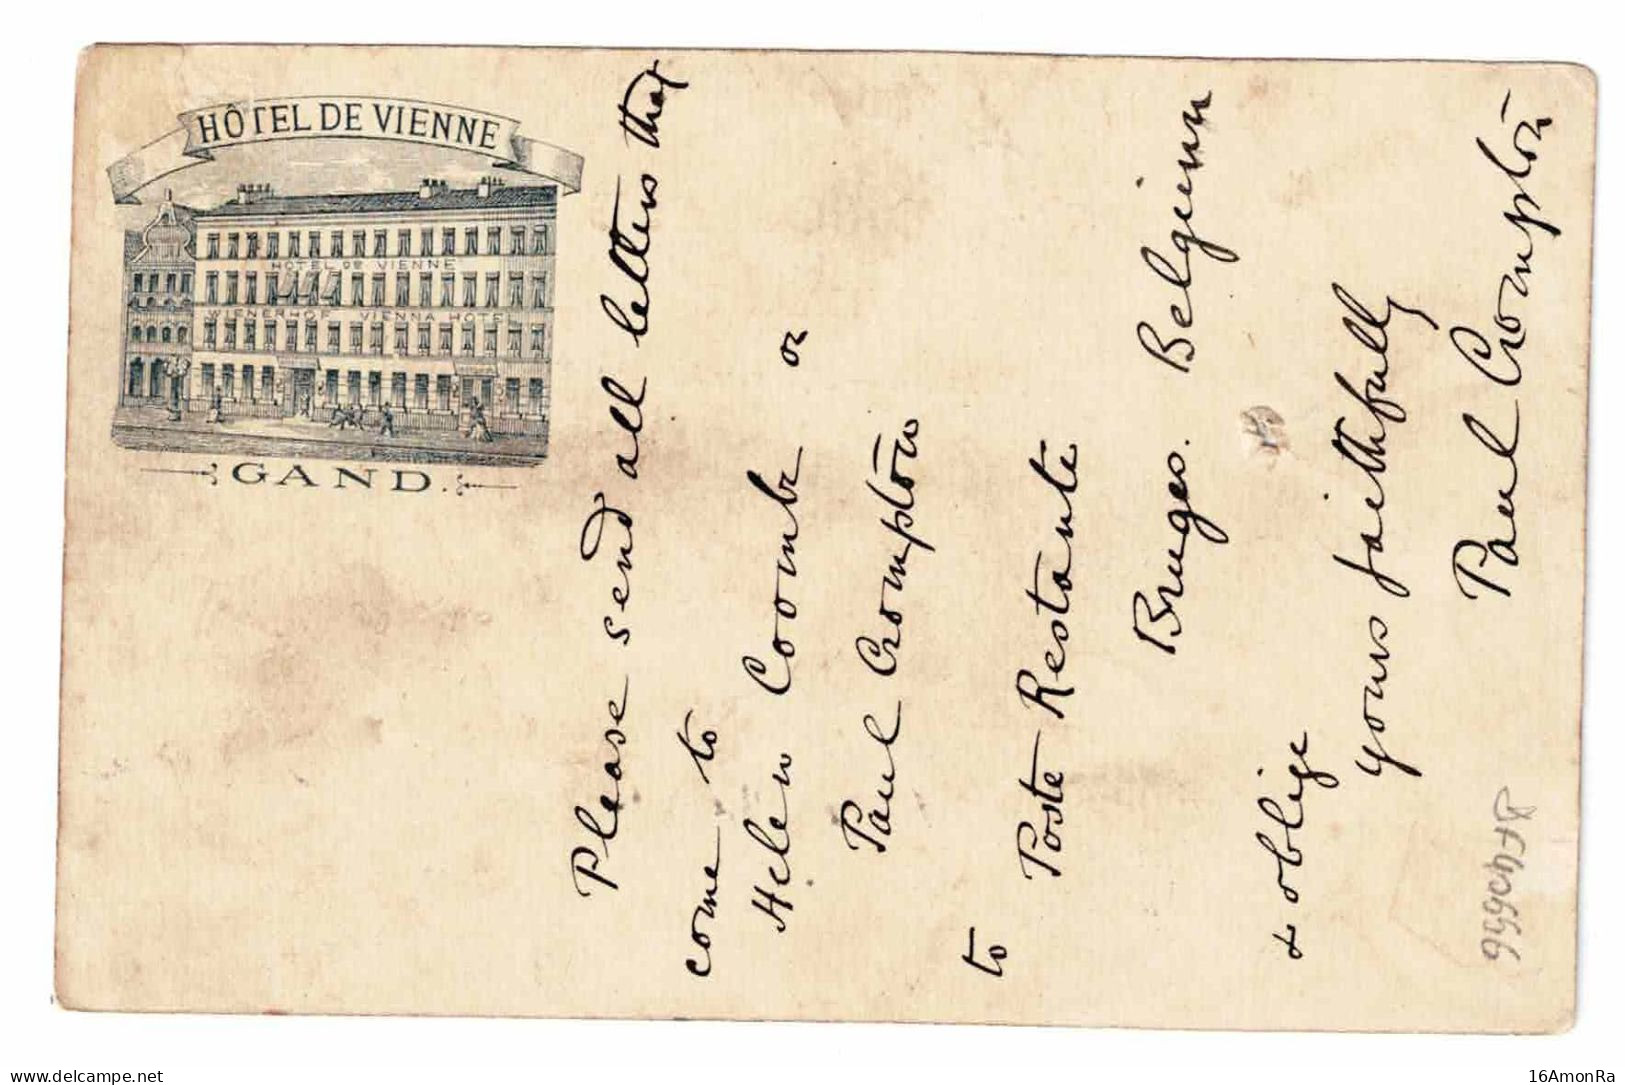 HÔTEL DE VIENNE
HOTEL DE VIENNE
WIENERHOF VIENNA HOTEL
GAND.
Please send all letters that
come to
Helen Coombe or
Paul Crompton
to
Poste Restante
Bruges. Belgium
& oblige
yours faithfully
Paul Crompton
www.delcampe.net
16AmonRa